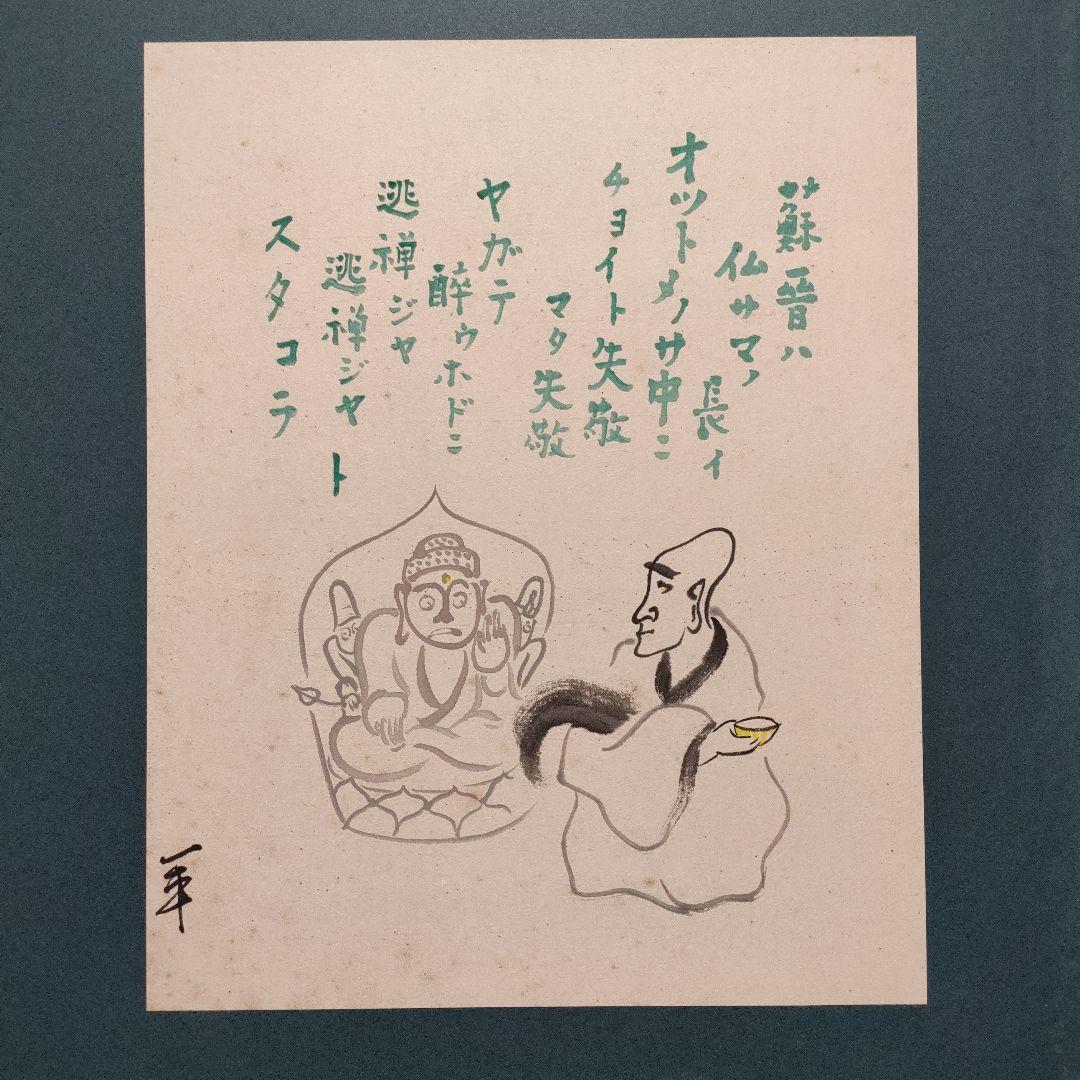 蘇晋ハ
仏サマノ
長イ
オツトメノサ中ニ
チヨイト失敬
マタ失敬
ヤガテ
酔ウホドニ
逃禅ジヤ
逃禅ジヤト
スタコラ